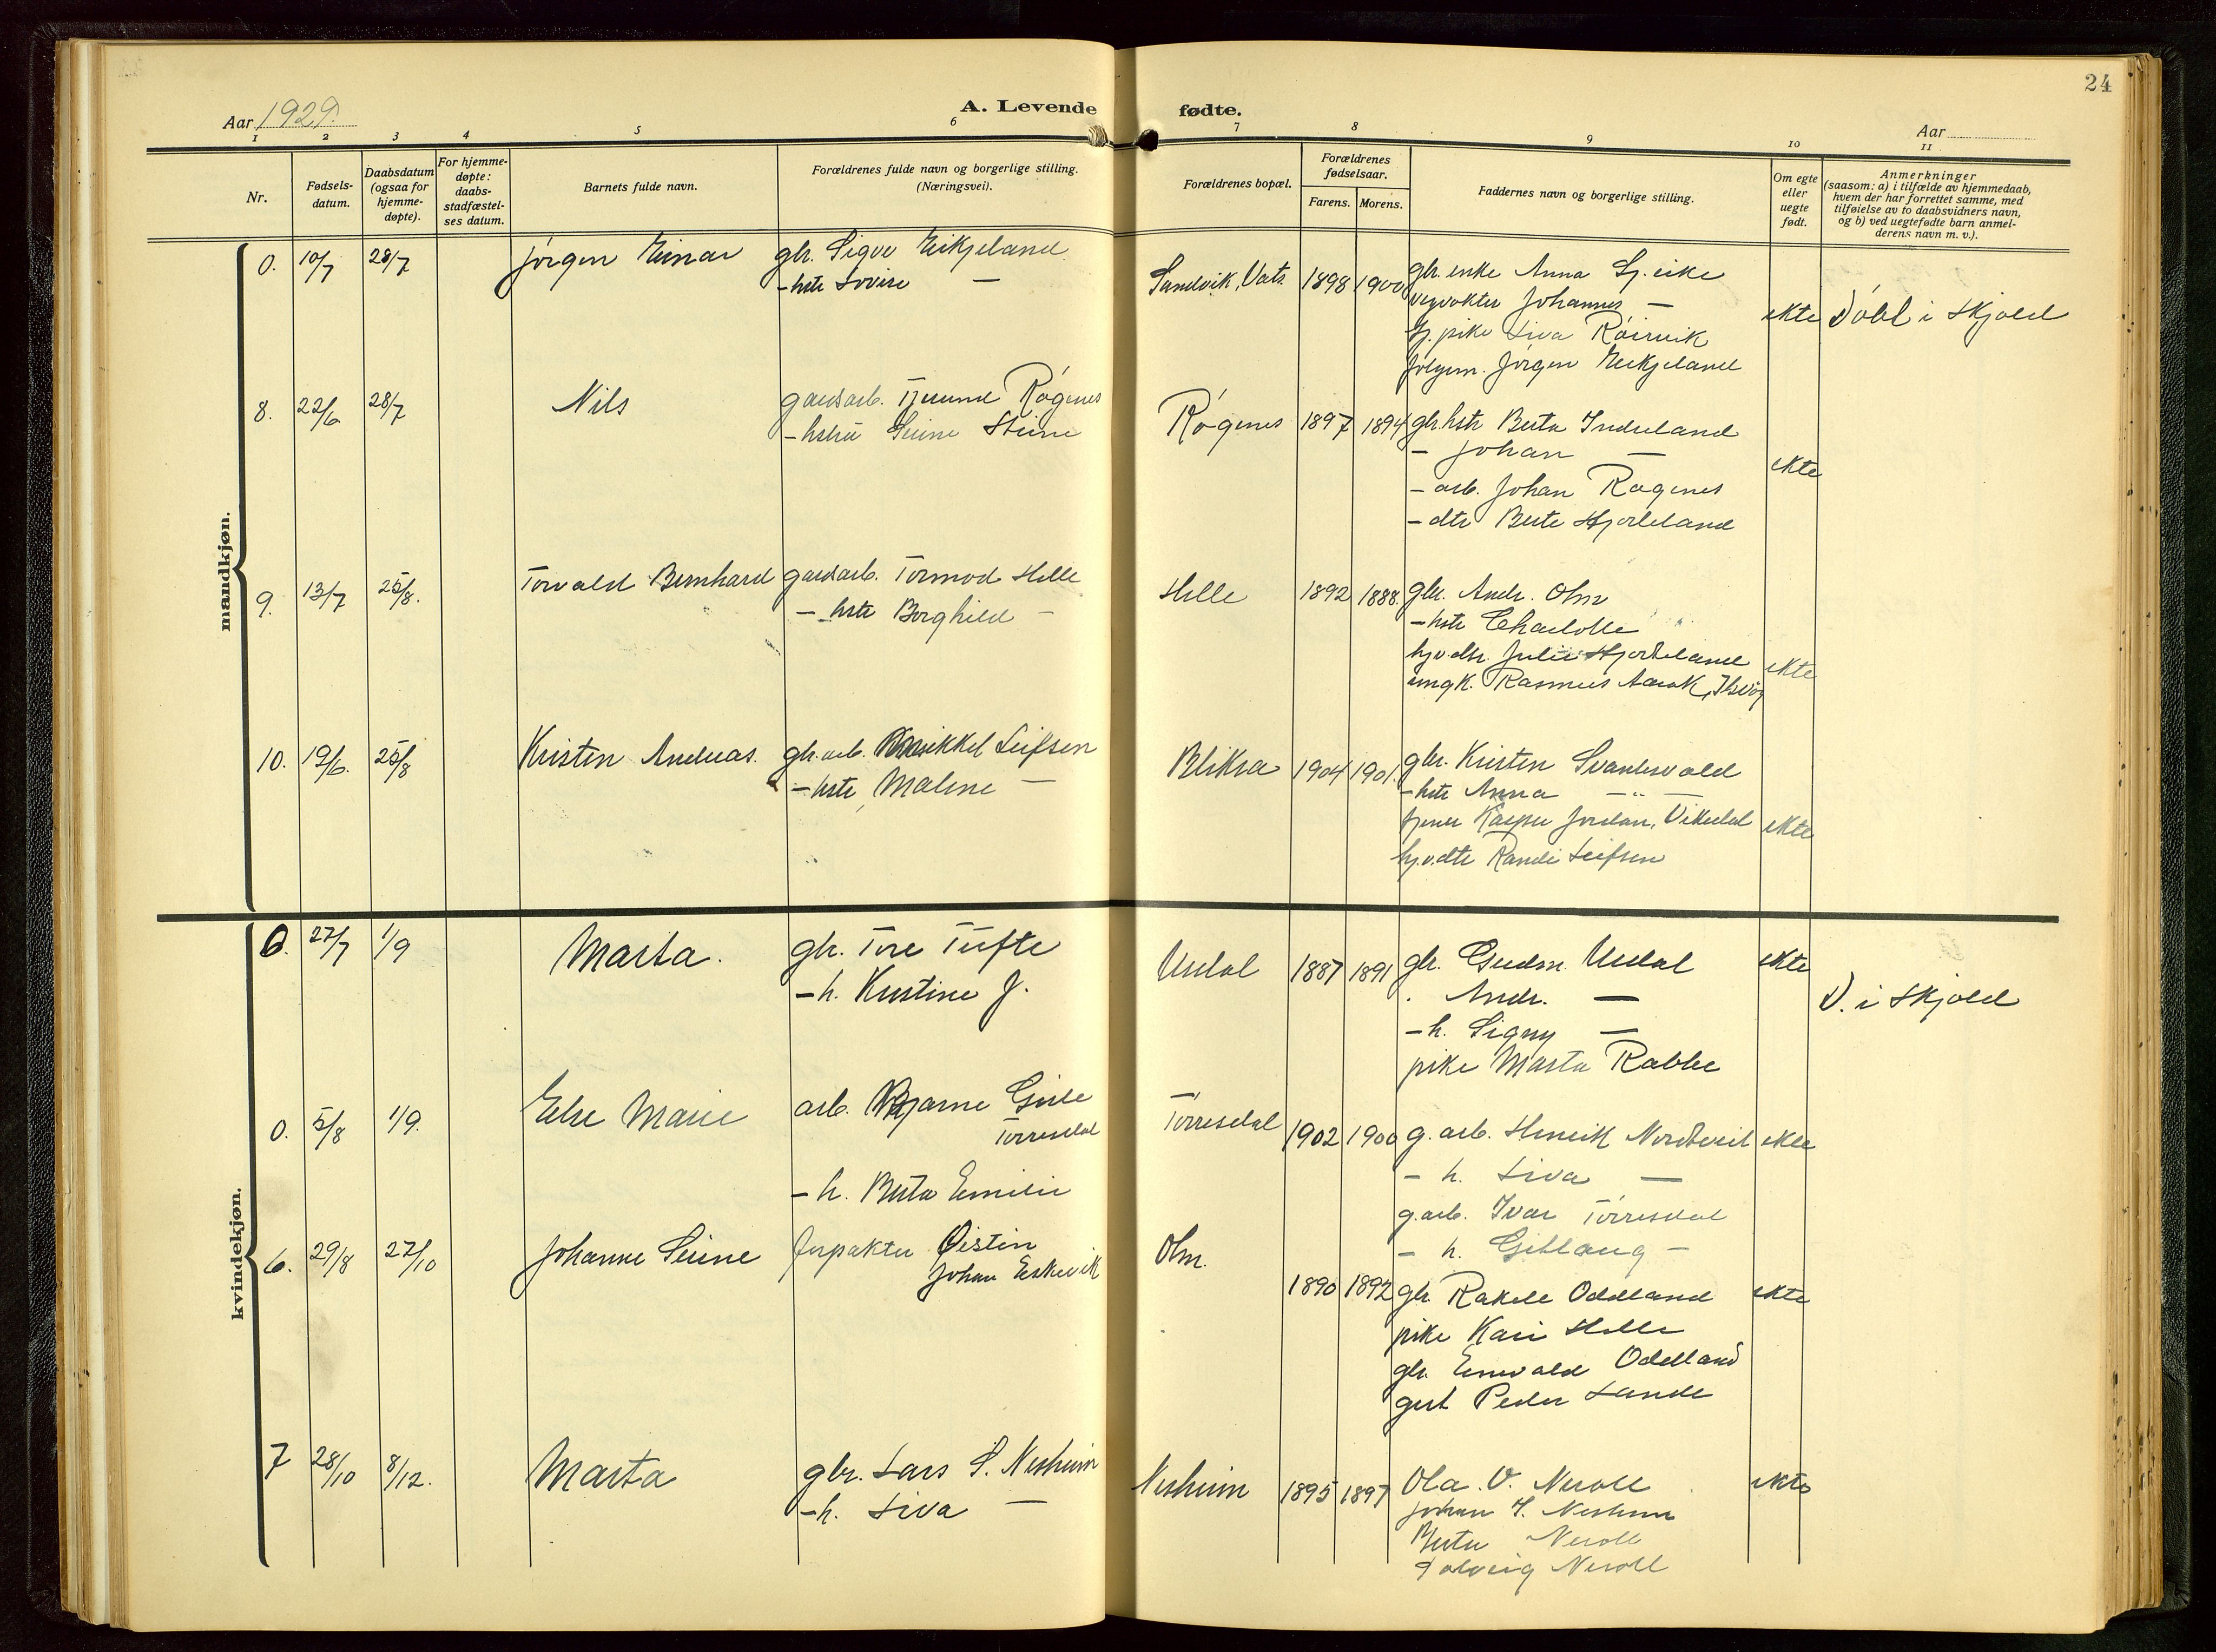 24
Aar 1929.
A. Levende fødte.
Aar
1 2 3 4 5 6 7 8 9 10 11
Nr.
Fødsels-
datum.
Daabsdatum
(ogsaa for
hjemme-
døpte).
For hjemme-
døpte:
daabs-
stadfæstel-
ses datum.
Barnets fulde navn.
Forældrenes fulde navn og borgerlige stilling.
(Næringsvei).
Forældrenes bopæl.
Forældrenes
fødselsaar.
Farens. Morens.
Faddernes navn og borgerlige stilling.
Om egte
eller
uegte
født.
Anmerkninger
(saasom: a) i tilfælde av hjemmedaab,
hvem der har forrettet samme, med
tilføielse av to daabsvidners navn,
og b) ved uegtefødte barn anmel-
derens navn m. v.).
mandkjøn.
0. 10/7 28/7 Jørgen Einar
gbr. Sigve Eikjeland
- hstr Lovise —
Sandvik, Vats. 1898 1900
gbr. enke Anna Gj. eike
vegvokter Johannes —
Gj. pike Siva Røirvik
følgem. Jørgen Eikjeland
ekte
Døbt i Skjold
8. 22/6 28/7 Nils
gaardsarb. Røgenes
Røgenes 1897 1894
gbr hstr Berta Indreland
- Johan —
- arb. Johan Røgenes
- dtr Berte Hjorteland
ekte
9. 13/7 25/8. Torvald Bernhard
gaardsarb. Tormod Helle
- hstr Borghild -
Helle 1892 1888.
gbr. Andr. Olm
- hstr Charlotte
hjv. dtr. Julie Hjorteland
ungk. Rasmus
ekte
10. 19/6. 25/8 Kristen Andreas.
gbr. arb. Mikkel Leifsen
- hstr Malene —
Bliksa 1904 1901.
gbr. Kristen Svandsvold
- hstr Anna — " —
Kasper Jordan, Vikedal
hj.v. dtr Randi Leifsen
ekte
kvindekjøn.
0. 27/7 1/9 Marta.
gbr. Tore Tufte
- h. Kristine J.
Urdal 1887 1891
gbr. Gudm. Urdal
. Andr. —
- h. Signy —
pike Marta Rabbe
ekte
D. i Skjold
0. 5/8 1/9. Else Marie
arb. Bjarne
Tørresdal
- h. Berta Emilie
Tørresdal 1902 1900
g. arb. Henrik Nordtveit
- h. Siva —
g. arb. Ivar Tørresdal
- h. Gitlaug -
ekte
6. 29/8 27/10 Johanne Serine
Øistin
Johan Eskevik
Olm. 1890 1892
gbr. Rakel Odeland
pike Kari Helle
gbr. Enevald Odelland
gut Peder Lunde
ekte
7 28/10 8/12. Marta
gbr. Lars S. Nesheim
- h. Siva —
Nesheim 1895 1897
Ola. V. Nerott
Johan Nesheim
Berta Nerott
Solveig Nerott
ekte